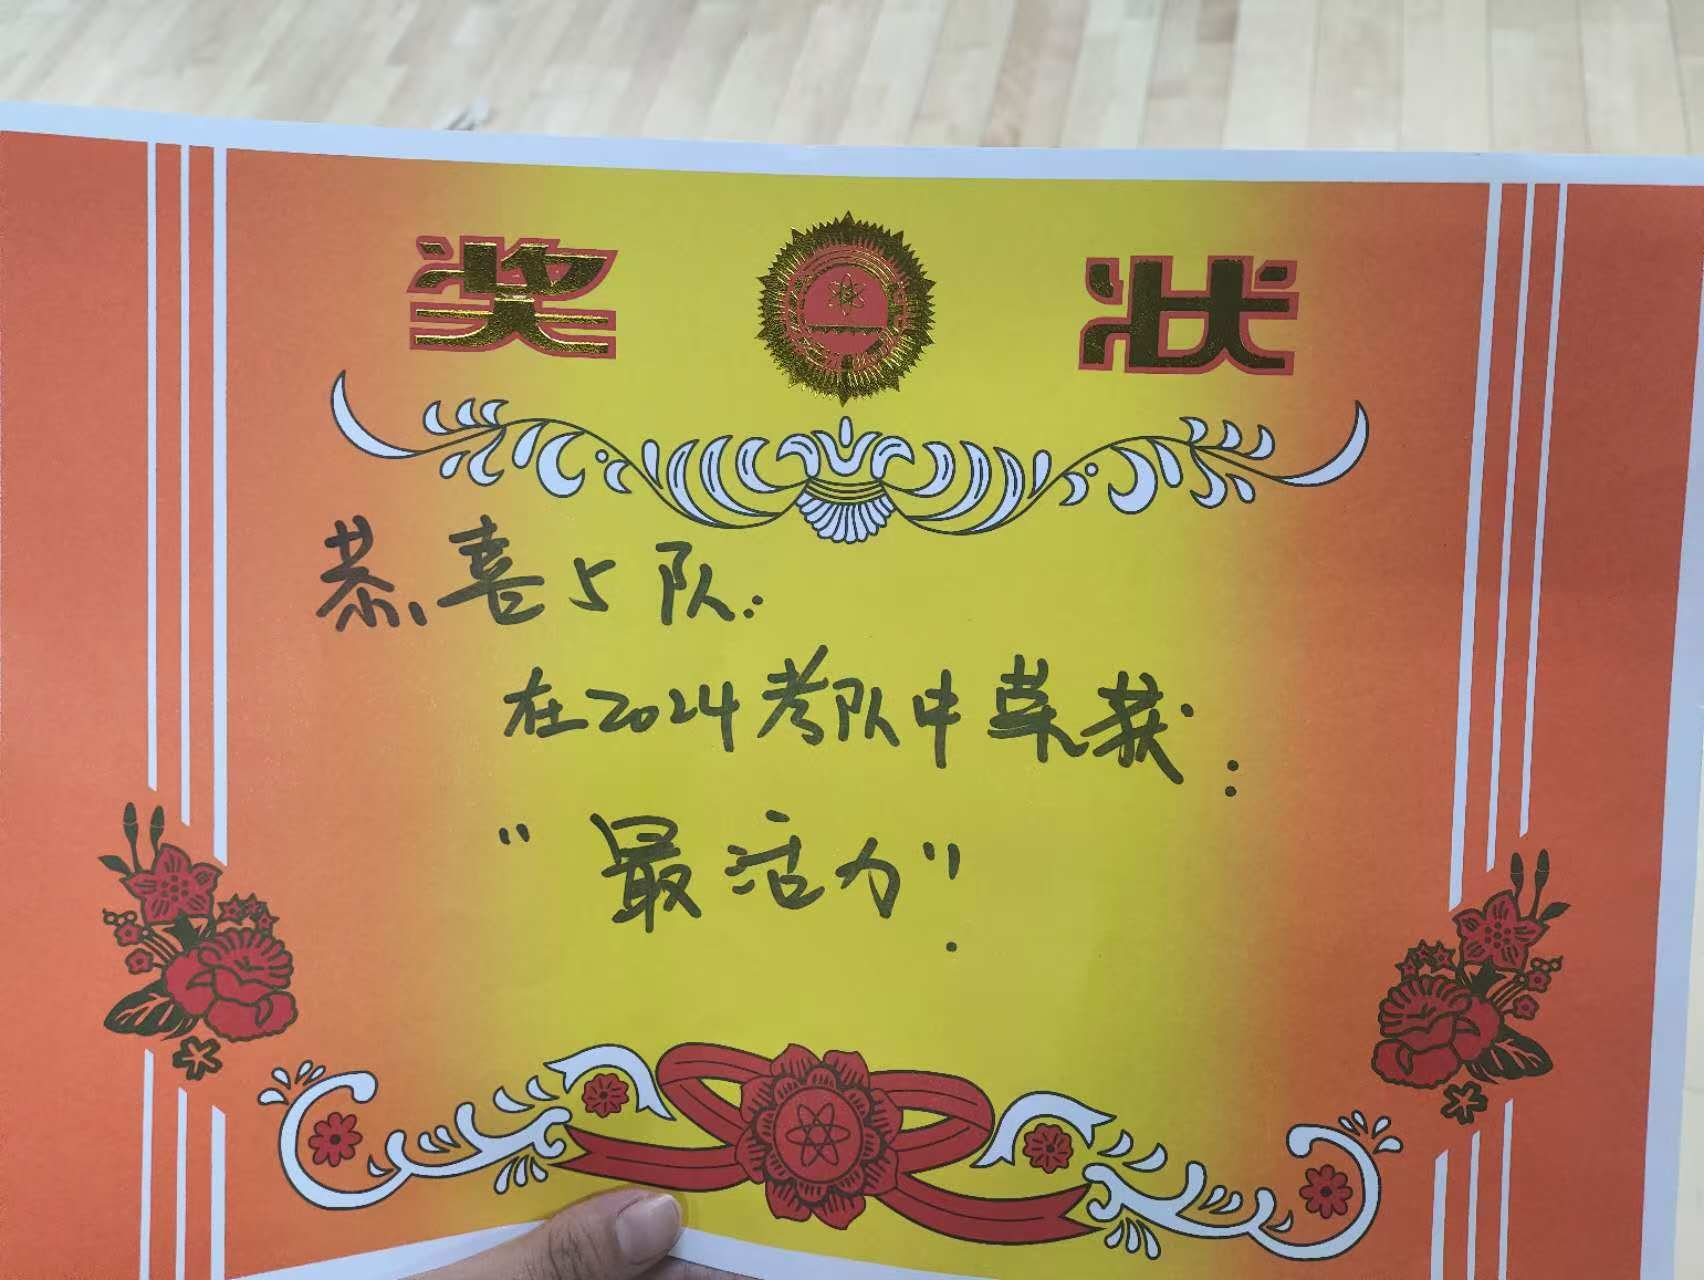 奖 状
恭喜5队:
在2024考队中荣获:
“最活力”.